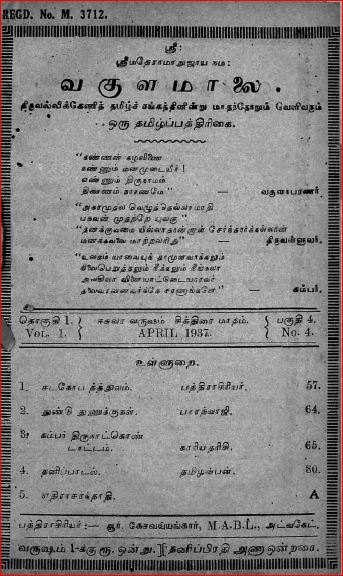 REGD. No. M. 3712.
ஸ்ரீ:
ஸ்ரீமதேராமாநுஜாய நம:
வகுளமாலை.
திருவல்லிக்கேணித் தமிழ்ச் சங்கத்தினின்று மாதந்தோறும் வெளிவரும்
ஒரு தமிழ்ப்பத்திரிகை.
"கண்ணன் கழலிணை
நண்ணும் மனமுடையீர்!
எண்ணும் திருநாமம்
திண்ணம் நாரணமே" — வகுளாபரணர்.
"அகரமுதல வெழுத்தெல்லாமாதி
பகவன் முதற்றே யுலகு"
"தனக்குவமை யில்லாதான்தாள் சேர்ந்தார்க்கல்லான்
மனக்கவலை மாற்றலரிது" — திருவள்ளுவர்.
"உலகம் யாவையுந் தாமுளவாக்கலும்
நிலைபெறுத்தலும் நீக்கலும் நீங்கலா
அலகிலா விளையாட்டுடையாரவர்
தலைவரன்னவர்க்கே சரணாங்களே" — கம்பர்.
தொகுதி 1. ஈசுவர வருஷம் சித்திரை மாதம். பகுதி 4.
VOL. 1. APRIL 1937. No. 4.
உள்ளுறை.
1. சடகோப தத்துவம். பத்திராசிரியர். 57.
2. துண்டு துணுக்குகள். பாரத்வாஜி. 64.
3. கம்பர் திருநாட்கொண்
டாட்டம். காரியதரிசி. 65.
4. தனிப்பாடல். தமிழன்பன். 80.
5. எதிராசரந்தாதி. A
பத்திராசிரியர்:— கேசவய்யங்கார், M.A.B.L., அட்வகேட்.
வருஷம் 1-க்கு ரூ. ஒன்று.] [தனிப்பிரதி அணா ஒன்றரை.